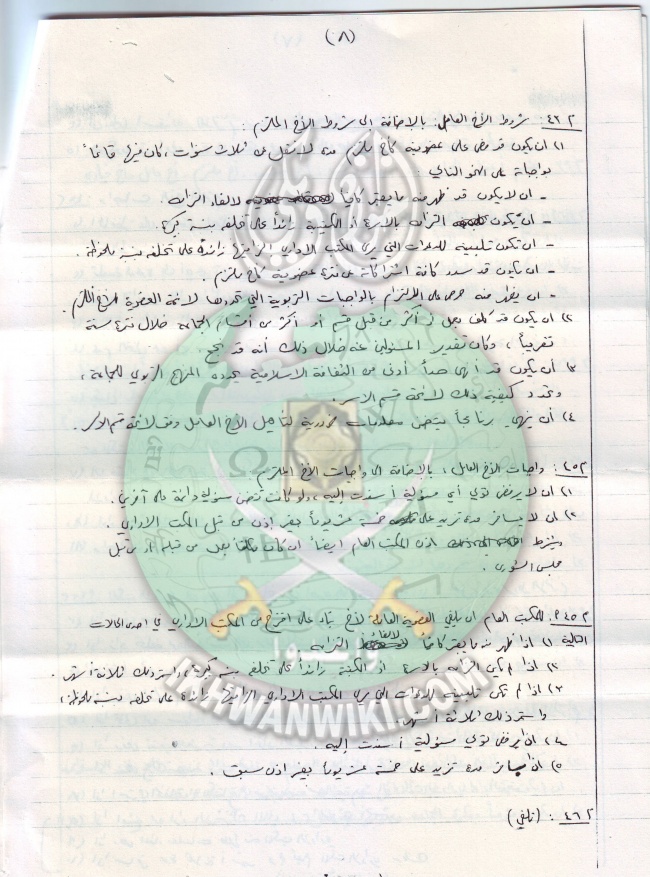 (٨)
م٤٣: شروط الأخ العامل: بالإضافة الى شروط الأخ الملتزم:
١) ان يكون قد مضى على عضويته كأخ ملتزم مدة لا تقل عن ثلاث سنوات، كان فيها قائماً
بواجباته على النحو التالي:
- ان لا يكون قد ظهر منه ما يعتبر كافياً لالغاء التزامه.
- ان يكون التزامه بالاسرة أو الكتيبة زائداً على تخلفه بنسبة كبيرة.
- ان تكون تلبيته للدعوات التي يرى المكتب الاداري الزاميتها زائدة على تخلفه بنسبة ملحوظة.
- ان يكون قد سدد كافة اشتراكاته عن فترة عضويته كأخ ملتزم.
- ان يظهر منه حرص على الالتزام بالواجبات التربوية التي تحددها لائحة العضوية للأخ الملتزم.
٢) ان يكون قد كلف بعمل أو أكثر من قبل قسم أو أكثر من أقسام الجماعة خلال فترة سنة
تقريباً، وكان تقدير المسئولين عنه خلال ذلك أنه قد نجح.
٣) أن يكون قد أنهى حداً أدنى من الثقافة الاسلامية يحدده المنهج التربوي للجماعة،
وتحدد كيفية ذلك لائحة قسم الاسر.
٤) أن ينهي برنامجاً يتضمن معلومات ضرورية لتأهيل الأخ العامل وفق لائحة قسم الاسر.
م٤٥: واجبات الأخ العامل، بالإضافة الى واجبات الأخ الملتزم:
١) ان لا يرفض تولي أي مسؤلية أسندت إليه، ولو كانت تتضمن مسؤلية دائمة
٢) ان لا يسافر مدة تزيد على خمسة عشر يوماً بغير إذن من قبل المكتب الاداري.
ويشترط اذن المكتب العام ايضاً ان كان مكلفاً بعمل من قبله أو من قبل
مجلس الشورى.
للمكتب العام ان يلغي العضوية العاملة لأخ بناء على اقتراح من المكتب الاداري في احدى الحالات
التالية ١) اذا ظهر منه ما يعتبر كافياً لالغاء التزامه.
٢) اذا لم يكن التزامه بالاسرة أو الكتيبة زائداً على تخلفه بنسبة كبيرة، واستمر ذلك ثلاثة أشهر.
٣) اذا لم تكن تلبيته للدعوات التي يرى المكتب الاداري الزاميتها زائدة على تخلفه بنسبة ملحوظة،
واستمر ذلك ثلاثة أشهر.
٤) ان يرفض تولي مسؤلية أسندت إليه.
٥) ان يسافر مدة تزيد على خمسة عشر يوماً بغير اذن مسبق.
م٤٦: (تلغى)
IKHWANWIKI.COM
وأعدوا